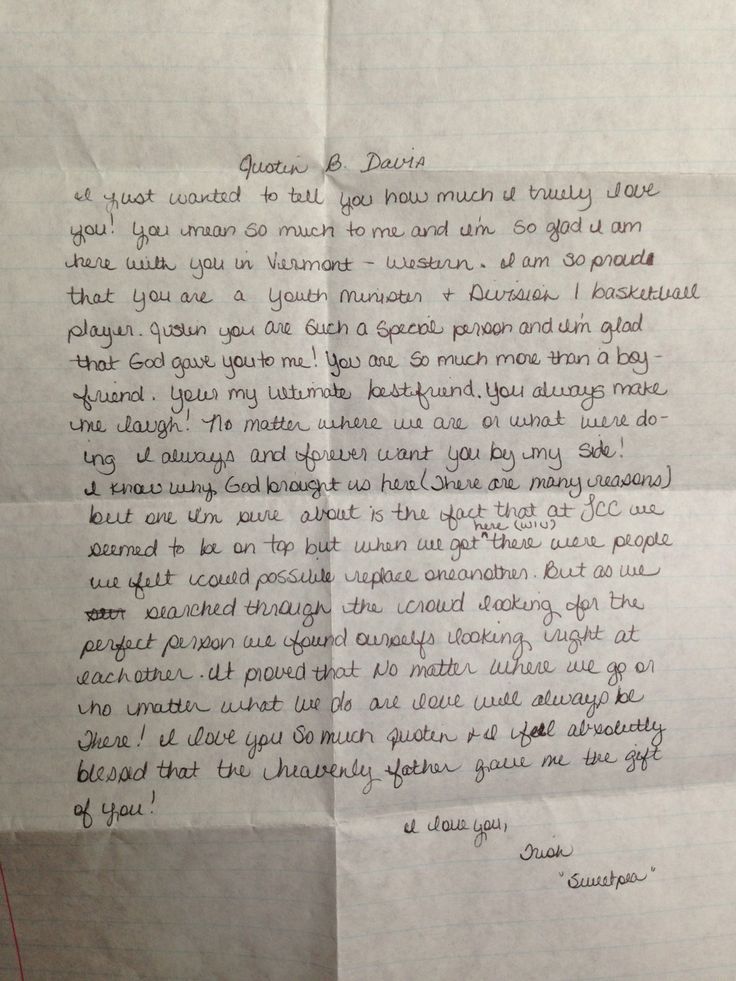 Justin B. Davis
I just wanted to tell you how much I truely love
you! You mean so much to me and I'm so glad I am
here with you in Vermont - Western. I am so proud
that you are a youth minister + Division 1 basketball
player. Justen you are such a special person and I'm glad
that God gave you to me! You are so much more than a boy-
friend. Your my ultimate bestfriend. You always make
me laugh! No matter where we are or what were do-
ing I always and forever want you by my side!
I know why God brought us here (There are many reasons)
but one I'm sure about is the fact that at JCC we
seemed to be on top but when we got here (WIU) there were people
we felt could possible replace oneanother. But as we
searched through the crowd looking for the
perfect person we found ourselfs looking right at
eachother. It proved that No matter where we go or
no matter what we do are love will always be
There! I love you So much Justen + I feel absolutly
blessed that the heavenly father gave me the gift
of you!
I love you,
Trish
"Sweetpea"